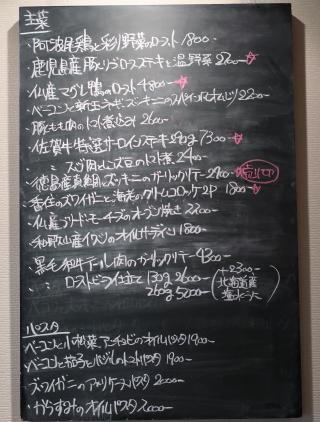 主菜
・阿波尾鶏と彩り野菜のロースト 1800-
・鹿児島産豚とりぶロースステーキと温野菜 2700-
・仏産マグレ鴨のロースト 4800-
・ベーコンと新玉ネギ、ズッキーニのスペイン風オムレツ 2200-
・豚もも肉の煮込み 2600-
・佐賀牛特選サーロインステーキ 7300-
・〃 スジ肉と大豆のトマト煮 2400-
・徳島産真鯛、ズッキーニのガーリックソテー 2900-
・香住のズワイガニと海老のクリームコロッケ 2P 1800-
・仏産ブリ・ド・モーのチーズのオーブン焼き 2200-
・和歌山産イワシのオイルサーディン 1800-
・黒毛和牛テール肉のガーリックソテー 4300-
・〃 ローストビーフ仕立て 130g 2600-
260g 5000-
+2300-
北海道産
パスタ
・ベーコンと小松菜、アンチョビのオイルパスタ 1900-
・ベーコンと茄子とバジルのトマトパスタ 1900-
・ズワイガニのアメリケーヌパスタ 2000-
・からすみのオイルパスタ 2000-